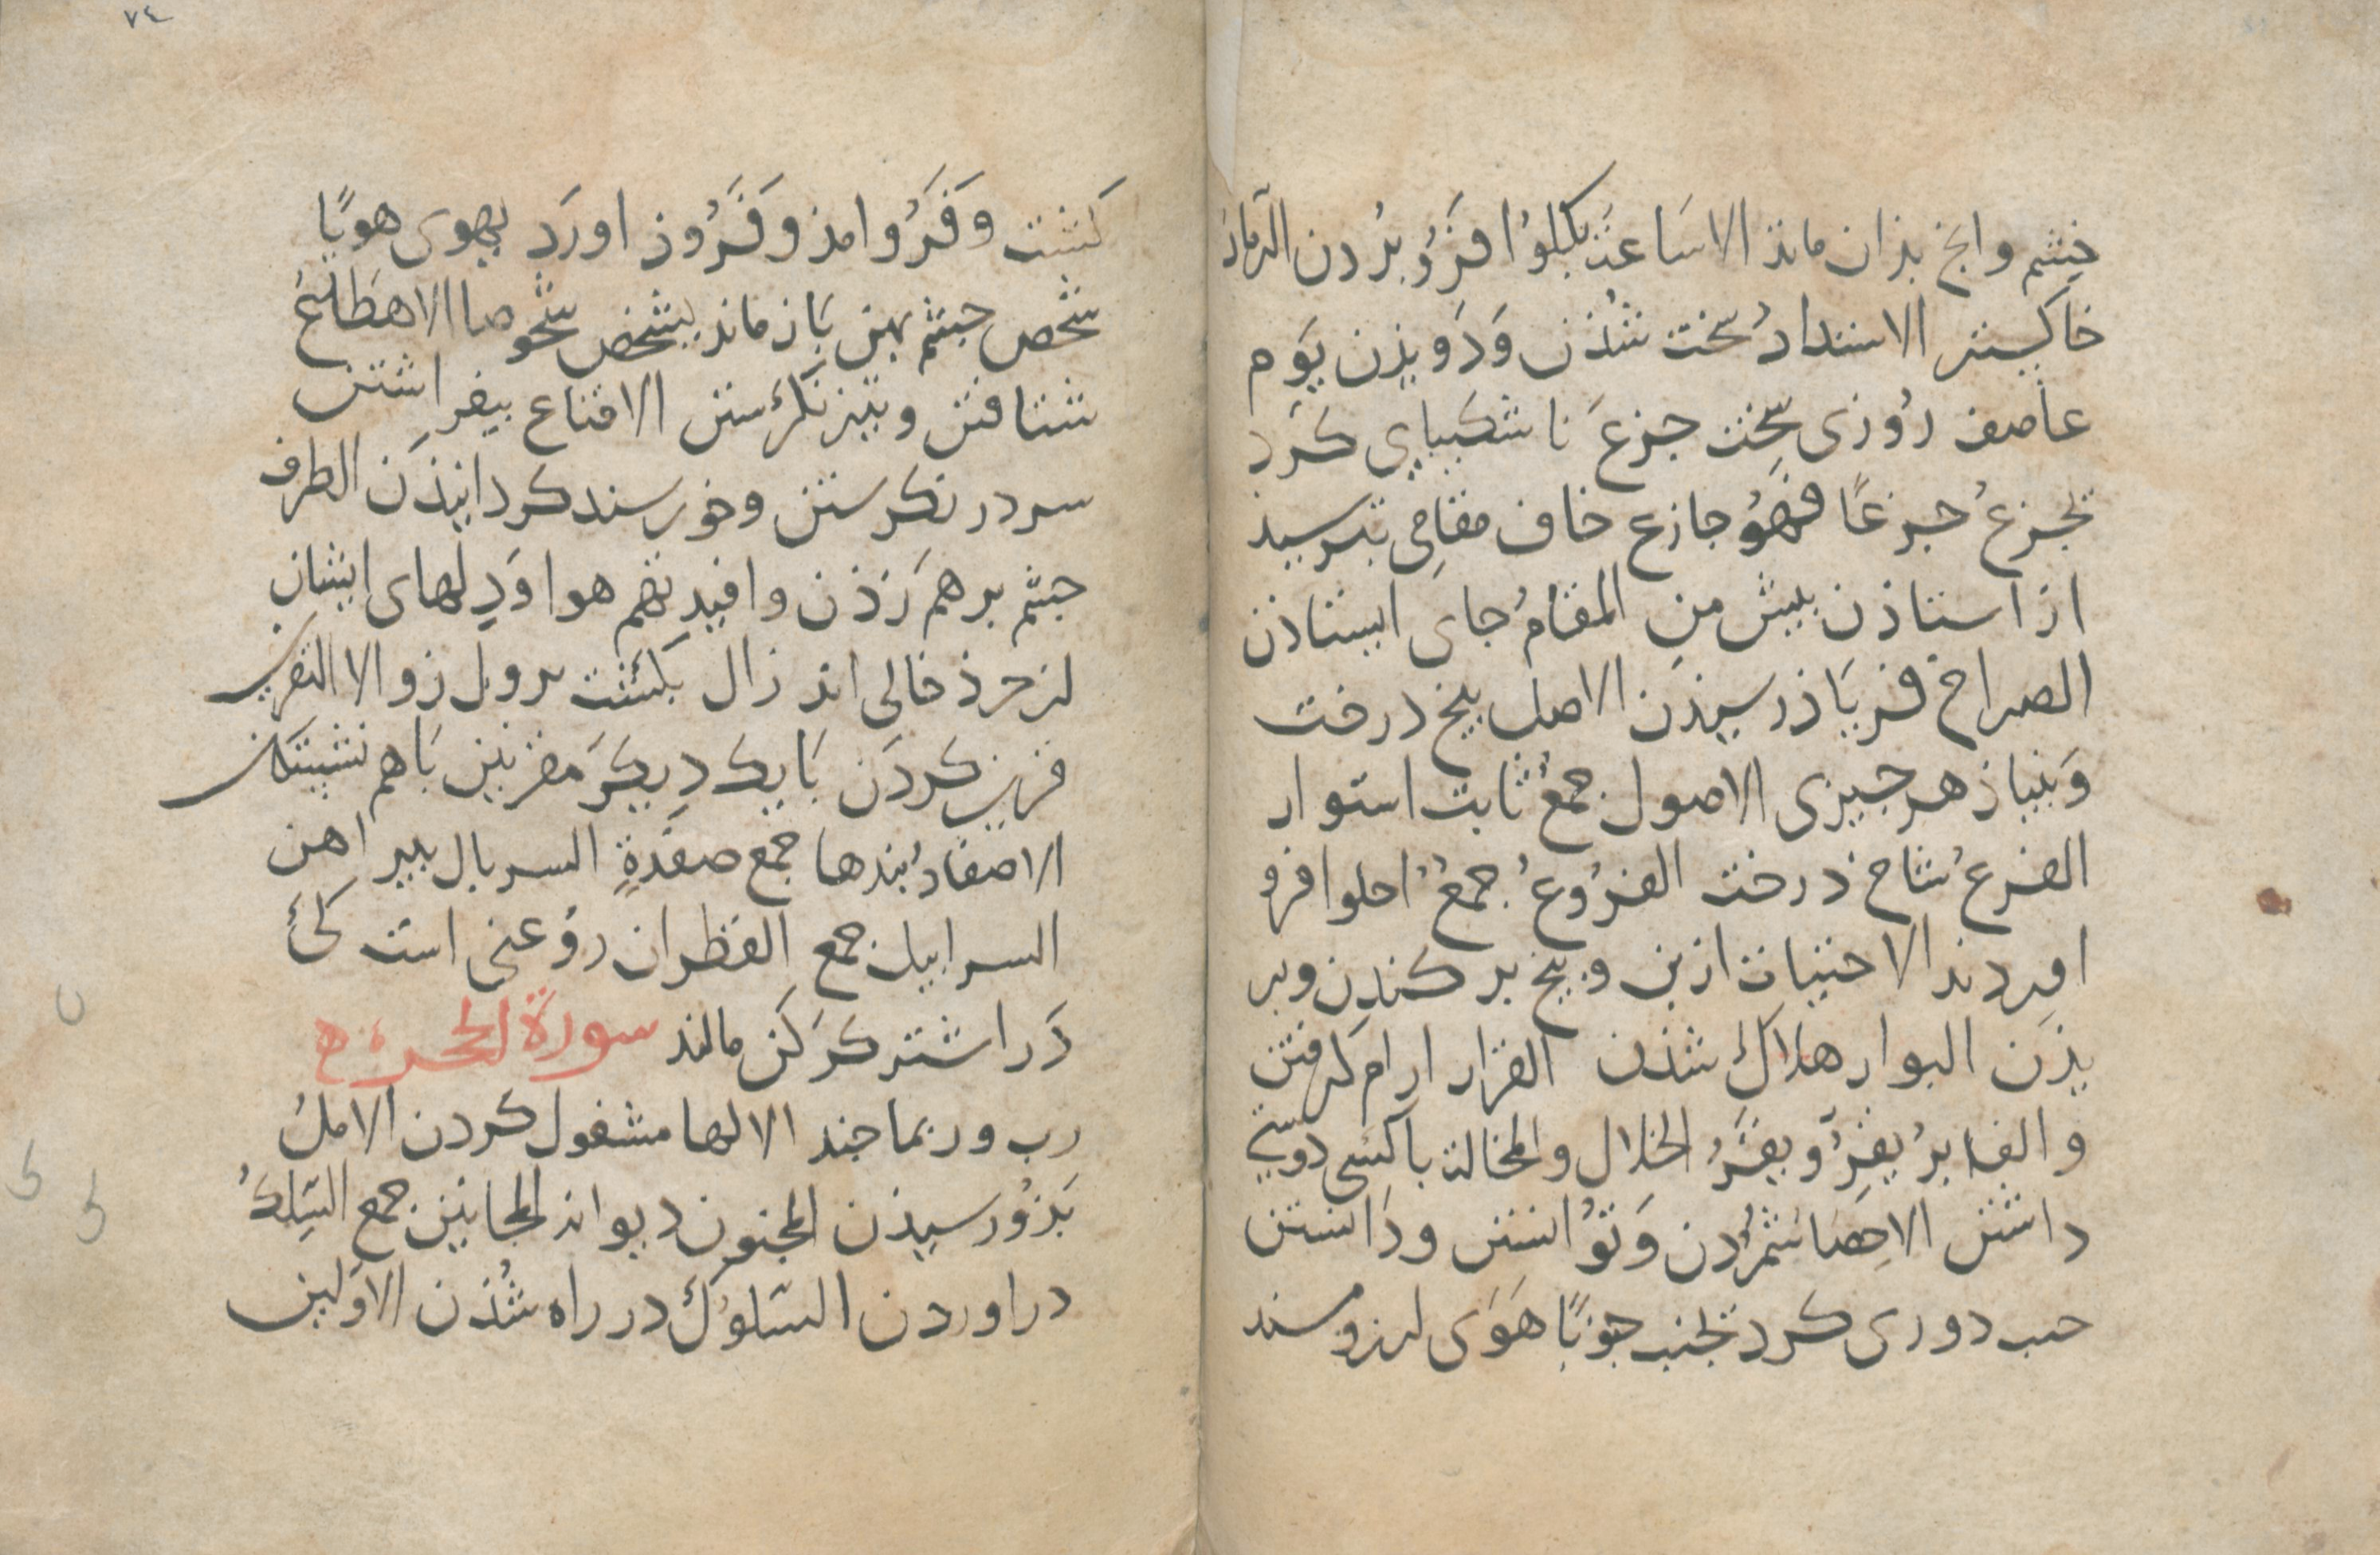 خشم وانچ بذان ماند الاساغة بکلوا فرو بردن الرماد
خاکستر الاشتداد سخت شذن وَدَویذن یَوم
عاصف رُوزی سخت جزعَ ناشکیبایی کرد
یجزعُ جزعًا فهُوَ جازع خاف مقامی بترسید
از استاذن پیش من المقامُ جای ایستاذن
الصراخ فریَاذ رسیذن الاصل بیخ درخت
وَبنیاذ هر چیزی الاصول جمعٌ ثابت استوار
الفرعُ شاخ درخت الفُروعُ جمعٌ احلوا فرو
اوردند الاجتثاث از بن و بیخ برکندن وبر
یذَن البوار هلاک شذن القرار ارام کرفتن
والغابر یقِرُّ ویقَرُّ الخلال والمخالة باکسی دوستی
داشتن الاحِصَا شمُردن وَتوُانستن ودَانستن
جنب دوری کرد یجنب جنوبًا هَوَی ارزومند
کشت وَفَرُوامذ وَفَرُوذ اورَد یهوی هویًا
شخص چشم بهن بَاز ماند یشخص شخوصا الاهطاعُ
شتافتن وتیز نکرستن الاقناع بیفراشتن
سر در نکرستن وخورسند کردانیذَن الطرف
چشم برهم زَذن وافیدتهم هوا وَدِلهای ایشان
از خرذ خالی اند زال بکشت یزول زوالا التقرین
قرین کردَن بَا یک دِیکَر مقرنین بَاهم نشستکان
الاصفادُ بندها جمع صفَدةٍ السربال پیراهن
السرابیل جمع القطران روُغنی است کی
دَر اشتر کرکن مالند سورة الحجر
رب وربما چند الالها مشغول کردن الاملُ
بَذو رسیذن المجنون دیوانه المجانین جمع السَلکُ
دراوردن السّلوُک در راه شذن الاوَلین
٧٤